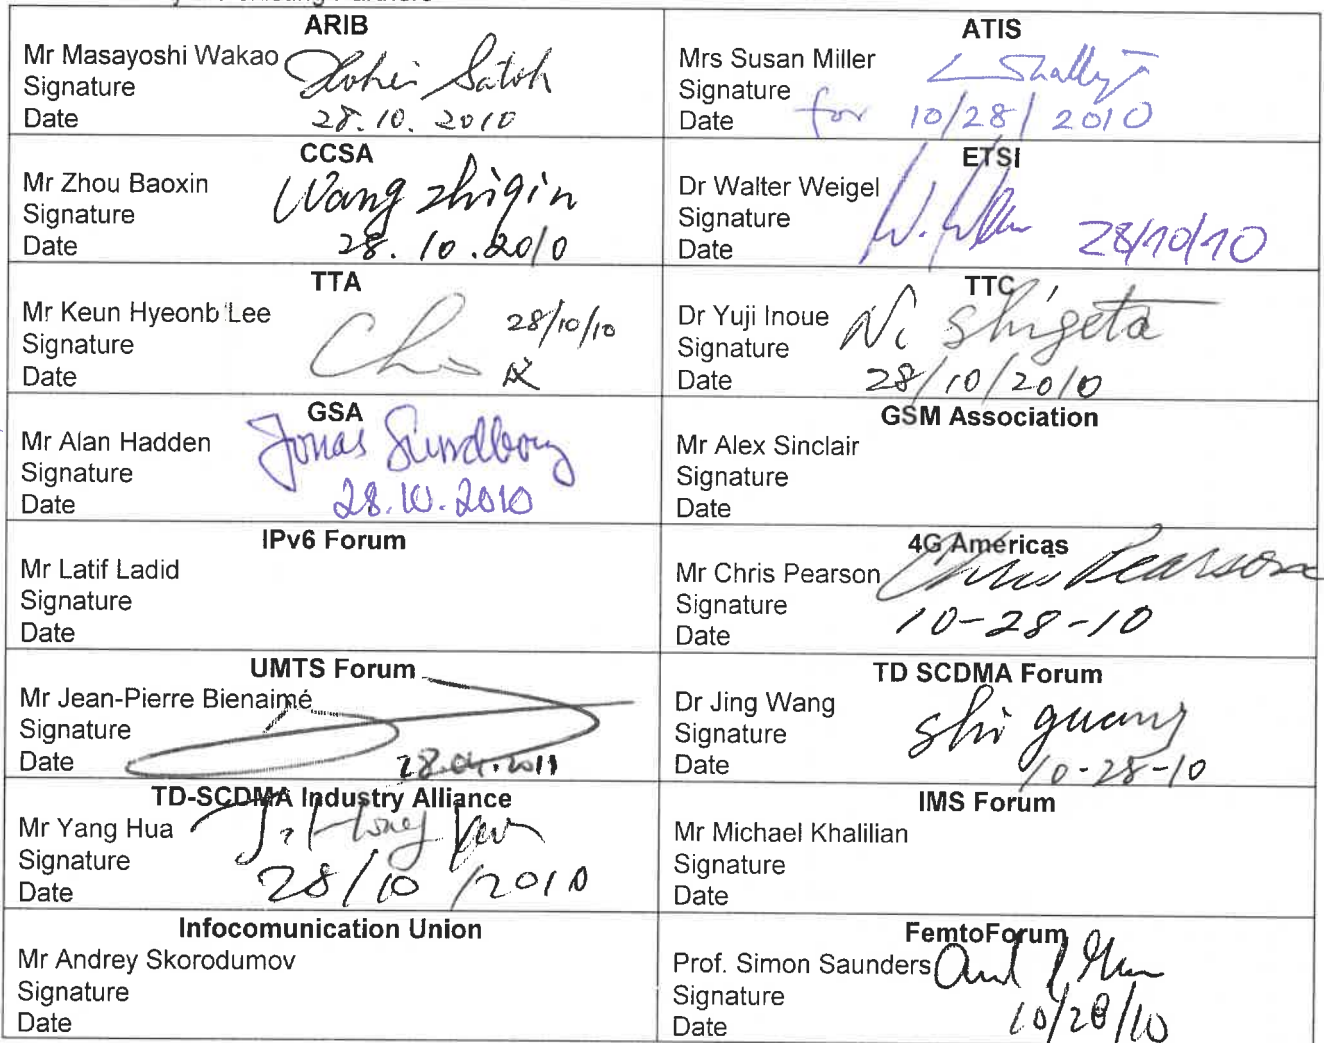 ARIB
Mr Masayoshi Wakao
Signature Kohei Satoh
Date 28.10.2010
ATIS
Mrs Susan Miller
Signature
Date for 10/28/2010
CCSA
Mr Zhou Baoxin
Signature Wang zhiqin
Date 28.10.2010
ETSI
Dr Walter Weigel
Signature
Date 28/10/10
TTA
Mr Keun Hyeonb Lee
Signature 28/10/10
Date
TTC
Dr Yuji Inoue
Signature N. Shigeta
Date 28/10/2010
GSA
Mr Alan Hadden
Signature Jonas Sundborg
Date 28.10.2010
GSM Association
Mr Alex Sinclair
Signature
Date
IPv6 Forum
Mr Latif Ladid
Signature
Date
4G Americas
Mr Chris Pearson Chris Pearson
Signature
Date 10-28-10
UMTS Forum
Mr Jean-Pierre Bienaimé
Signature
Date 28.04.2011
TD SCDMA Forum
Dr Jing Wang
Signature Shi guang
Date 10-28-10
TD-SCDMA Industry Alliance
Mr Yang Hua
Signature
Date 28/10/2010
IMS Forum
Mr Michael Khalilian
Signature
Date
Infocomunication Union
Mr Andrey Skorodumov
Signature
Date
FemtoForum
Prof. Simon Saunders
Signature
Date 10/28/10